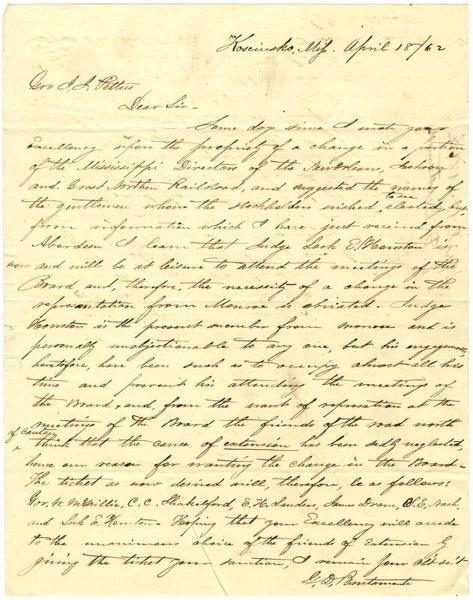 Kosciusko, Miss. April 18/62
Gov J. J. Pettus
Dear Sir -
Some day since I wrote your
Excellency upon the propriety of a change in a portion
of the Mississippi Directors of the New Orleans, Jackson
and Great Northern Railroad, and suggested the names of
the gentlemen whom the stockholders wished to be elected, but
from information which I have just received from
Aberdeen I learn that Judge Lock E. Houston is
now and will be at leisure to attend the meetings of the
Board, and, therefore, the necessity of a change in the
representation from Monroe is obviated. Judge
Houston is the present member from Monroe and is
personally unobjectionable to any one, but his engagements,
heretofore, have been such as to occupy almost all his
time and prevent his attending the meetings of
the Board, and, from the want of representation at the
meetings of the Board the friends of the road north
of Canton think that the cause of extension has been sadly neglected,
hence our reason for wanting the change in the Board.
The ticket as now desired will, therefore, be as follows:
Gov. W. McWillie, C. C. Shakelford, E. H. Sanders, James Drane, E. Nash,
and Lock E. Houston - Hoping that your Excellency will accede
to the unanimous choice of the friends of Extension by
giving the ticket your sanction, I remain your obt. se't
G. D. Bustamente